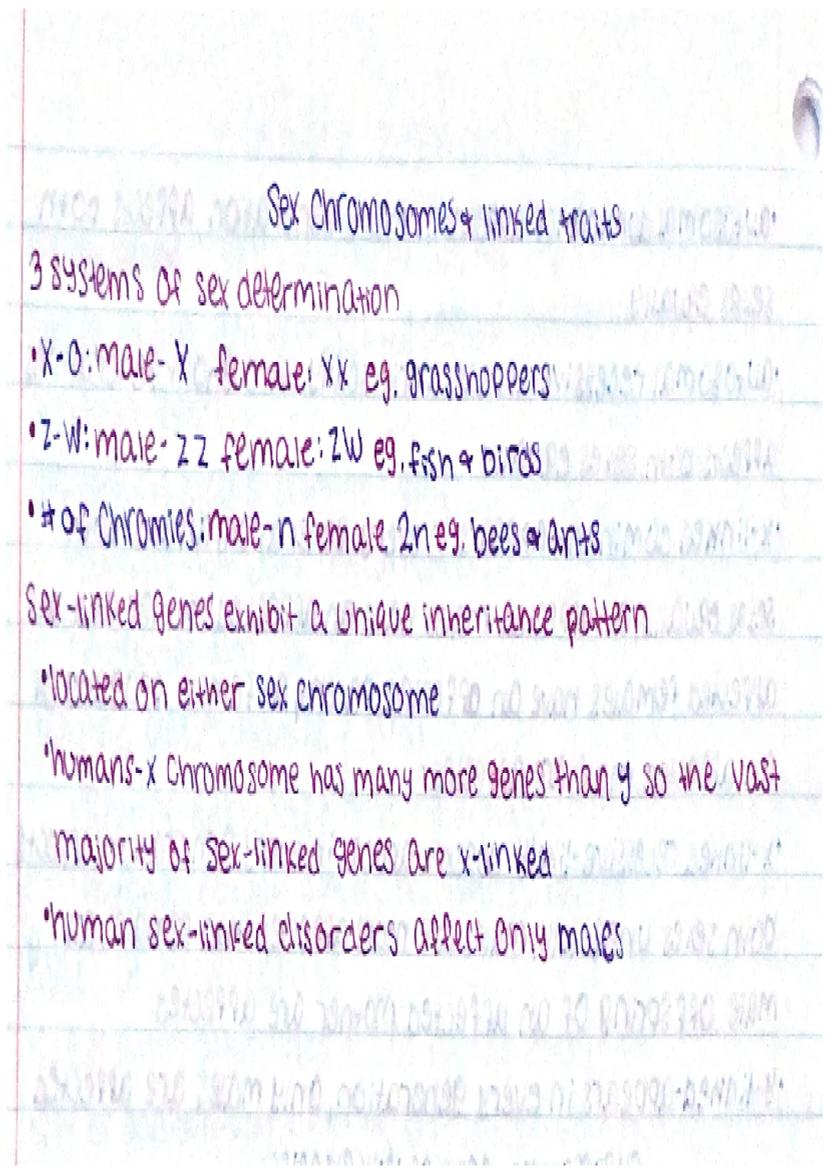 Sex Chromosomes & linked traits
3 systems of sex determination
•X-O: male- X female: XX eg. grasshoppers
•Z-W: male- ZZ female: ZW eg. fish & birds
•# of Chromies: male-n female 2n eg. bees & ants
Sex-linked genes exhibit a unique inheritance pattern
•located on either sex chromosome
•humans-x chromosome has many more genes than y so the vast
majority of sex-linked genes are x-linked
•human sex-linked disorders affect only males